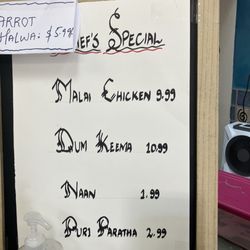 ARROT
HALWA: $5.99
HEF'S SPECIAL
MALAI CHICKEN 9.99
DUM KEEMA 10.99
NAAN 1.99
PURI PARATHA 2.99